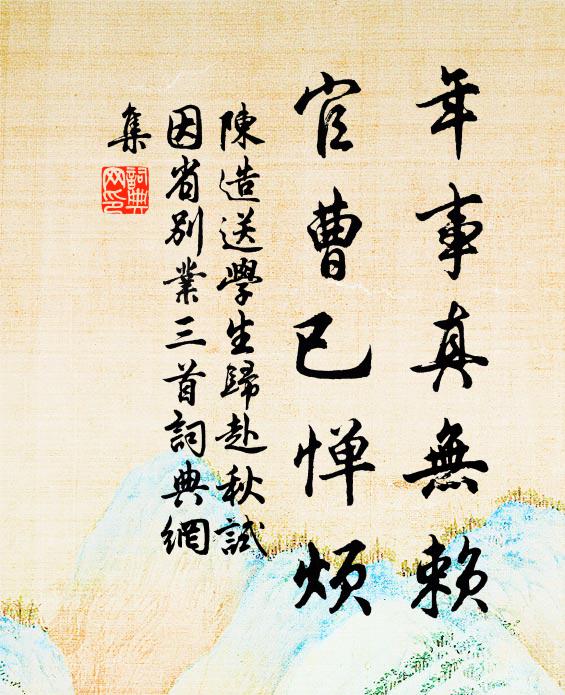 年事真無賴
官曹已惮煩
陳造送學生歸赴秋試
因省別業三首詞典網
集
詞典
网印